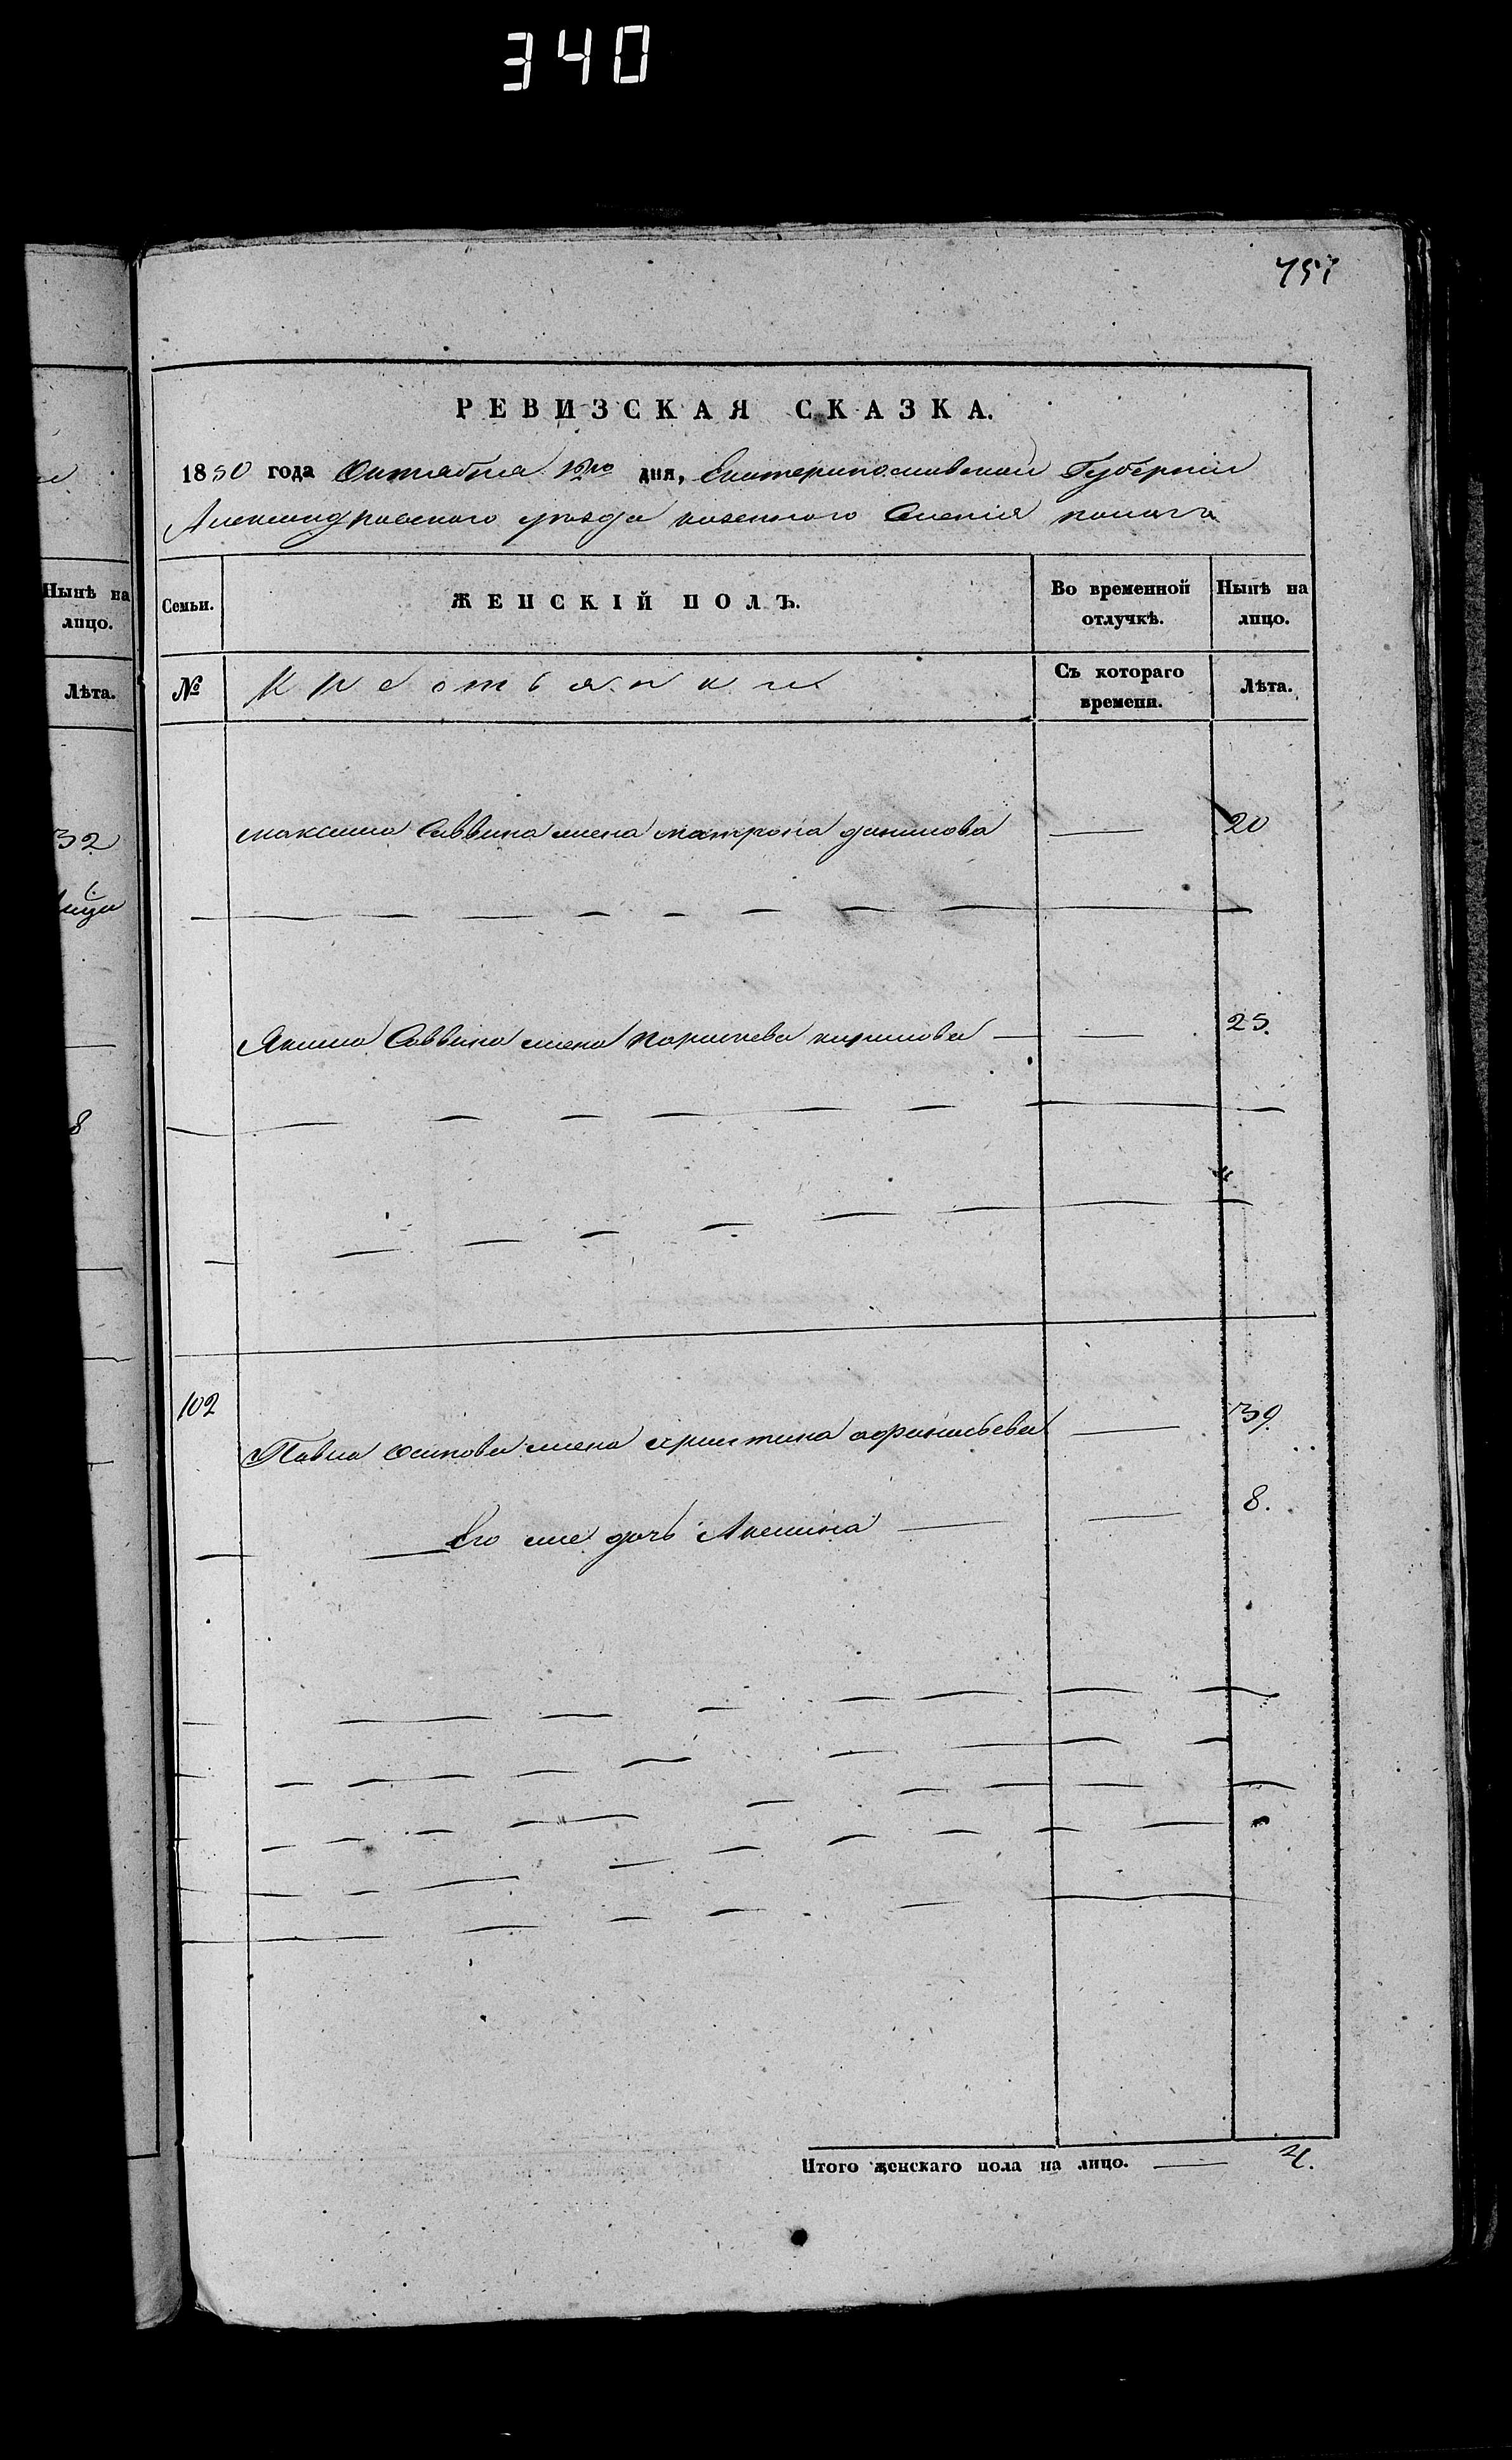 340
751
РЕВИЗСКАЯ СКАЗКА.
1850 года Октября 12го дня, Екатеринославской Губернии
Александровского уезда казенного Селения
Семьи.
ЖЕНСКІЙ ПОЛЪ.
Во временной отлучкѣ.
Нынѣ на лицо.
№
Крестьянки
Съ котораго времени.
Лѣта.
Максима Саввина жена Матрона данилова — 20
Якима Саввина жена Параскева кирилова — — 25.
102
Павла Осипова жена христина афанасьева — 39.
Его же дочь Акелина — — 8.
Итого женскаго пола на лицо. — 4.
Нынѣ на
лицо.
Лѣта.
32
8